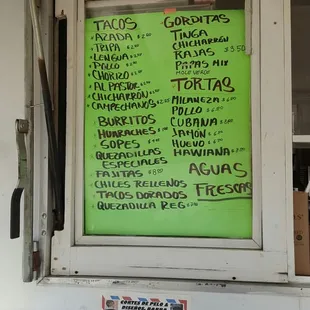 TACOS
AZADA $2.00
TRIPA $
LENGUA $
POLLO $
CHORIZO $
AL PASTOR
CHICHARRÓN
CAMPECHANOS $
BURRITOS
HUARACHES
SOPES
QUEZADILLAS
ESPECIALES
FAJITAS $
CHILES RELLENOS
TACOS DORADOS
QUEZADILLA REG
GORDITAS
TINGA
CHICHARRÓN
RAJAS $3.50
PAPAS MIX
MOLE VERDE
TORTAS
MILANEZA
POLLO $
CUBANA
JAMÓN
HUEVO
HAWIANA
AGUAS
FRESCAS
CORTES DE PELO A
DISEÑOS, BARBA